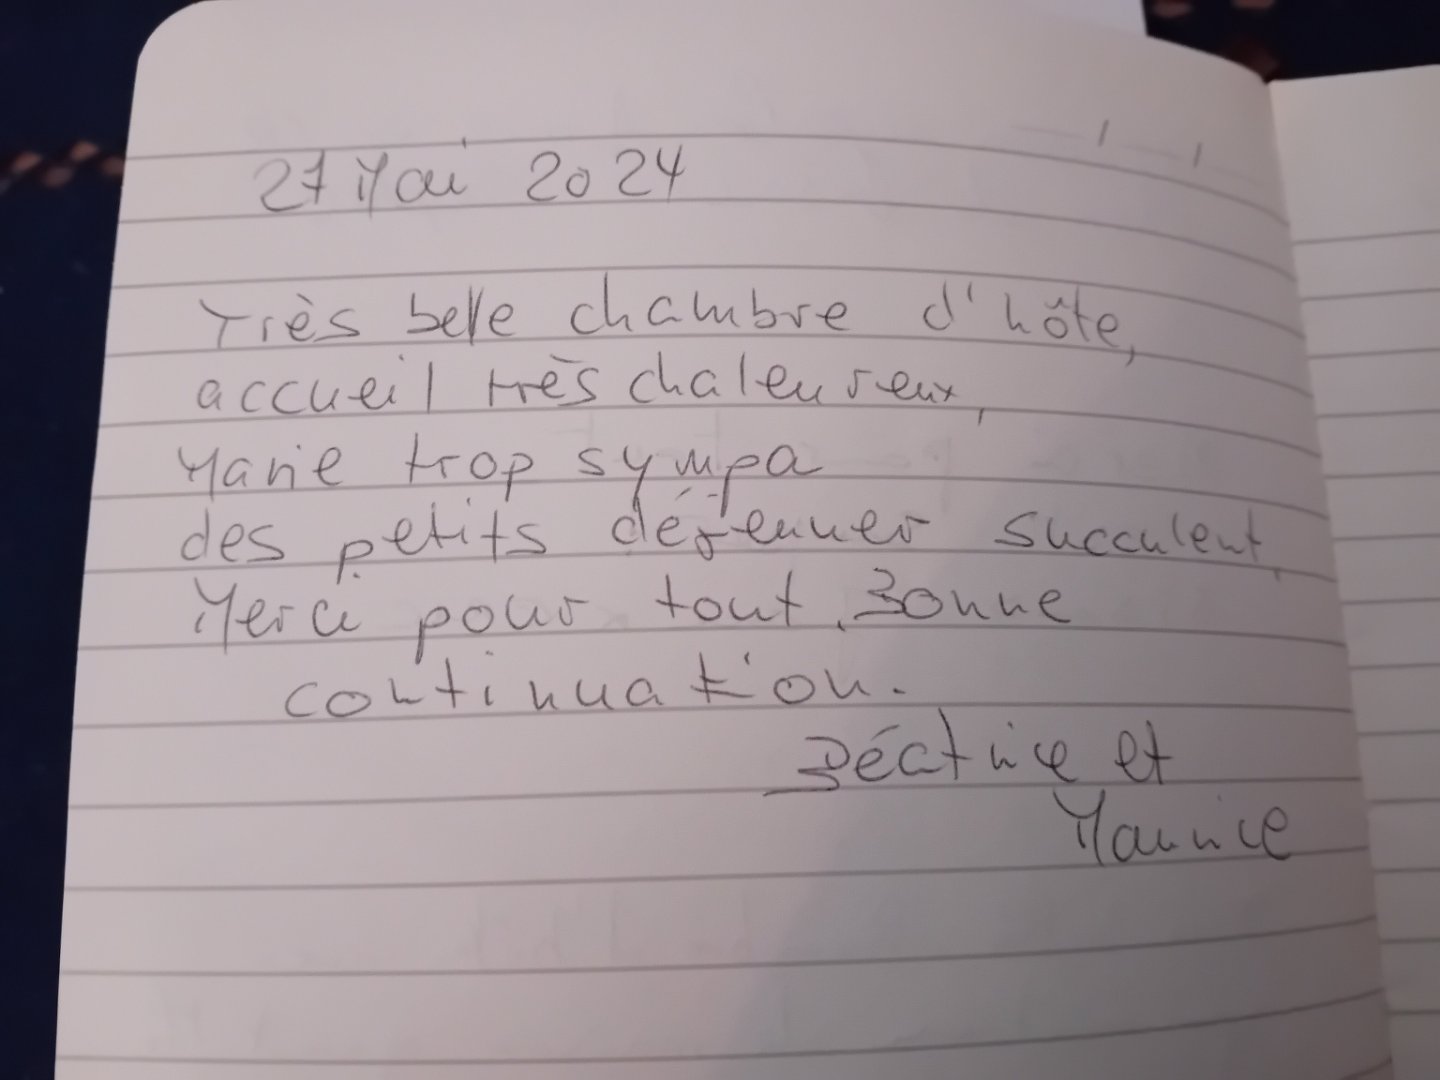 27 Mai 2024
Très belle chambre d'hôte,
accueil très chaleureux,
Marie trop sympa
des petits déjeuner succulent,
Merci pour tout. Bonne
continuation.
Béatrice et
Maurice